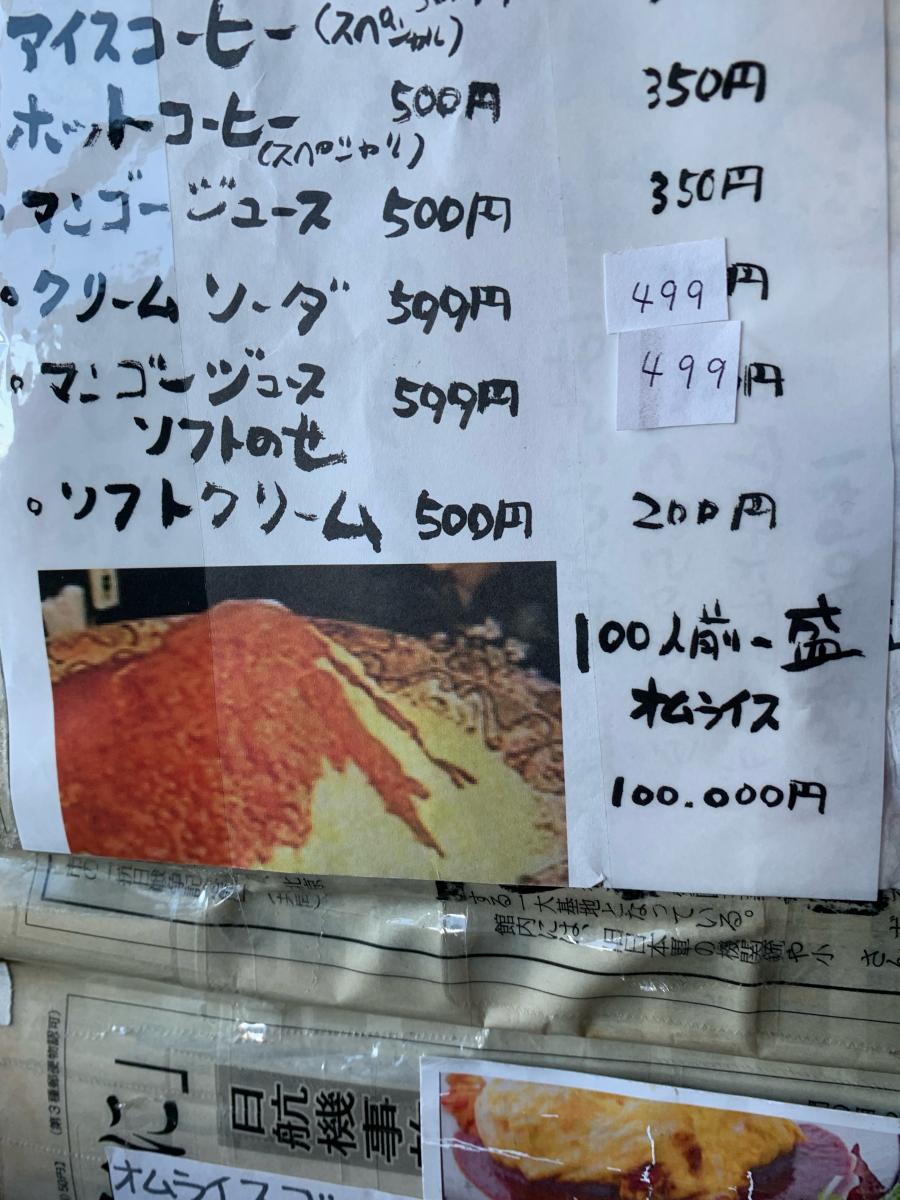 アイスコーヒー (スペシャル)
500円 350円
ホットコーヒー
(スペシャル)
マンゴージュース 500円 350円
クリームソーダ 599円 499円
マンゴージュース 599円 499円
ソフトのせ
ソフトクリーム 500円 200円
100人前一盛
オムライス
100.000円
する一大基地となっている。
館内には、旧日本軍の機関銃や小
(第3種郵便物認可)
に」
日航機事
オムライス